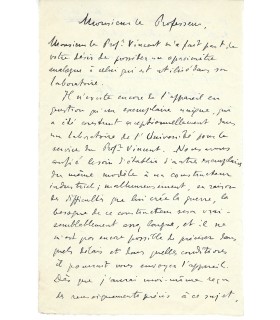 Monsieur le Professeur,
Monsieur le Prof. Vincent m'a fait part de
votre désir de posséder un opacimètre
analogue à celui qui est utilisé dans son
laboratoire.
Il n'existe encore de l'appareil en
question qu'un exemplaire unique, qui
a été construit exceptionnellement dans
un laboratoire de l'Université pour le
service du Prof. Vincent. Nous avons
confié le soin d'établir d'autres exemplaires
du même modèle à un constructeur
industriel; malheureusement, en raison
des difficultés que lui crée la guerre, la
besogne de ce constructeur sera vrai-
semblablement assez longue, et il ne
m'est pas encore possible de préciser dans
quels délais et dans quelles conditions
il pourrait vous envoyer l'appareil.
Dès que j'aurai moi-même reçu
des renseignements précis à ce sujet,